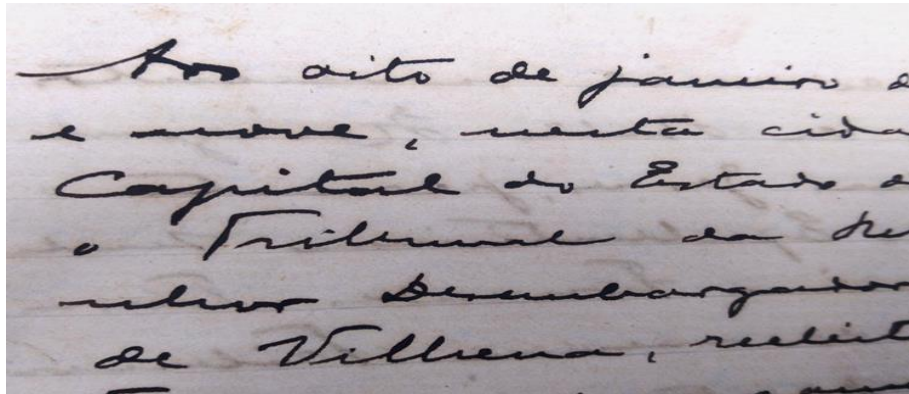 Aos oito de janeiro d
e nove, nesta cida
Capital do Estado d
o Tribunal da Re
nhor Desembargador
de Vilhena,